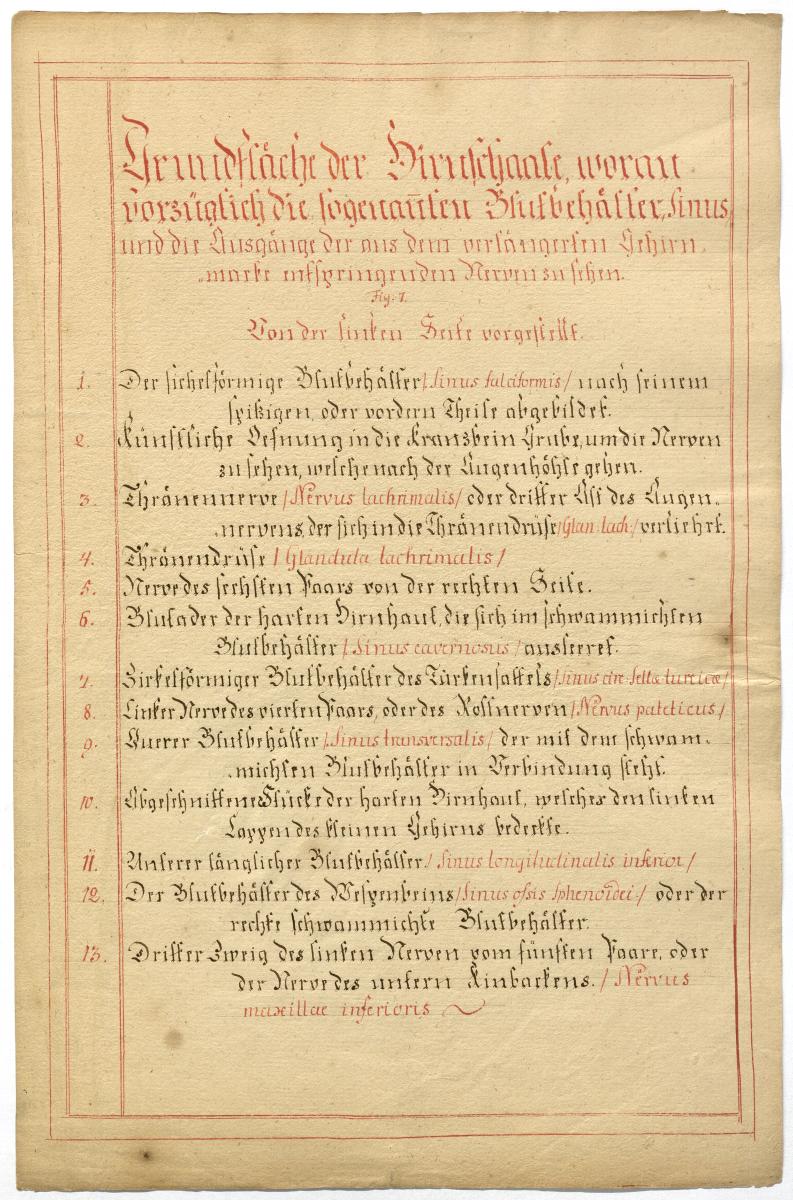 Grundfläche der Hirnschaale, woran
vorzüglich die sogenañten Blutbehälter, Sinus,
und die Ausgänge der aus dem verlängerten Gehirn„
„marke entspringenden Nerven zu sehen.
Fig: 1.
Von der linken Seite vorgestellt.
1. Der sichelförmige Blutbehälter /:Sinus falciformis/ nach seinem
spizigen, oder vordern Theile abgebildet.
2. Künstliche Oefnung in die Kranzbein Grube, um die Nerven
zu sehen, welche nach der Augenhöhle gehen.
3. Thränennerve /Nervus lachrimalis/ oder dritter Ast des Augen„
„nervens, der sich in die Thränendrüse /Glan: lach:/ verliehrt.
4. Thränendrüse / Glandula lachrimalis /
5. Nerve des sechsten Paars von der rechten Seite.
6. Blutader der harten Hirnhaut, die sich im schwammichten
Blutbehälter /:Sinus cavernosus/ ausleeret.
7. Zirkelförmiger Blutbehälter des Türkensattels /Sinus cir: Sellæ turcicæ/
8. Linker Nerve des vierten Paars, oder des Rollnerven /Nervus pateticus/
9. Querer Blutbehälter /:Sinus transversalis/ der mit dem schwam„
„michten Blutbehälter in Verbindung steht.
10. Abgeschnittene Stücke der harten Hirnhaut, welches den linken
Lappen des kleinen Gehirns bedeckte.
11. Unterer länglicher Blutbehälter /Sinus longitudinalis inferior/
12. Der Blutbehälter des Wespenbeins /Sinus ossis Sphenoidei:/ oder der
rechte schwammichte Blutbehälter.
13. Dritter Zweig des linken Nerven vom fünften Paare, oder
der Nerve des untern Kinbackens. / Nervus
maxillae inferioris